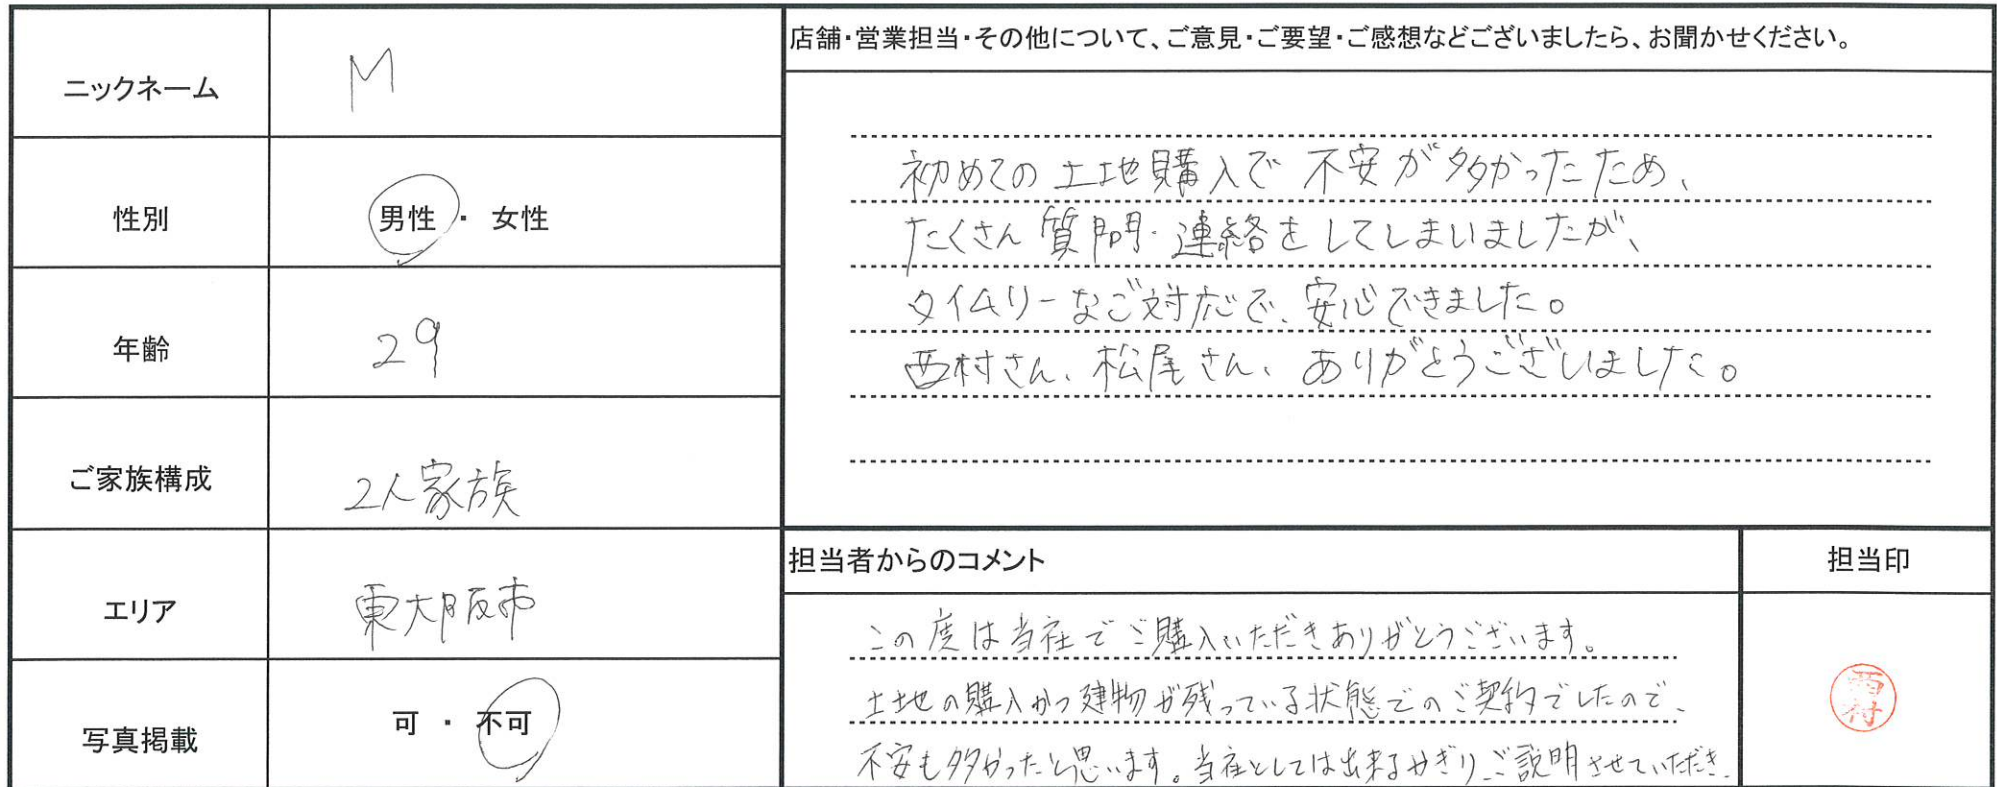 ニックネーム
M
性別
男性・女性
年齢
29
ご家族構成
2人家族
エリア
東大阪市
写真掲載
可・不可
店舗・営業担当・その他について、ご意見・ご要望・ご感想などございましたら、お聞かせください。
初めての土地購入で不安が多かったため、
たくさん質問・連絡をしてしまいましたが、
タイムリーなご対応で、安心できました。
西村さん、松尾さん、ありがとうございました。
担当者からのコメント
この度は当社でご購入いただきありがとうございます。
土地の購入かつ建物が残っている状態でのご契約でしたので、
不安も多かったと思います。当社としては出来るかぎりご説明させていただき、
担当印
西村